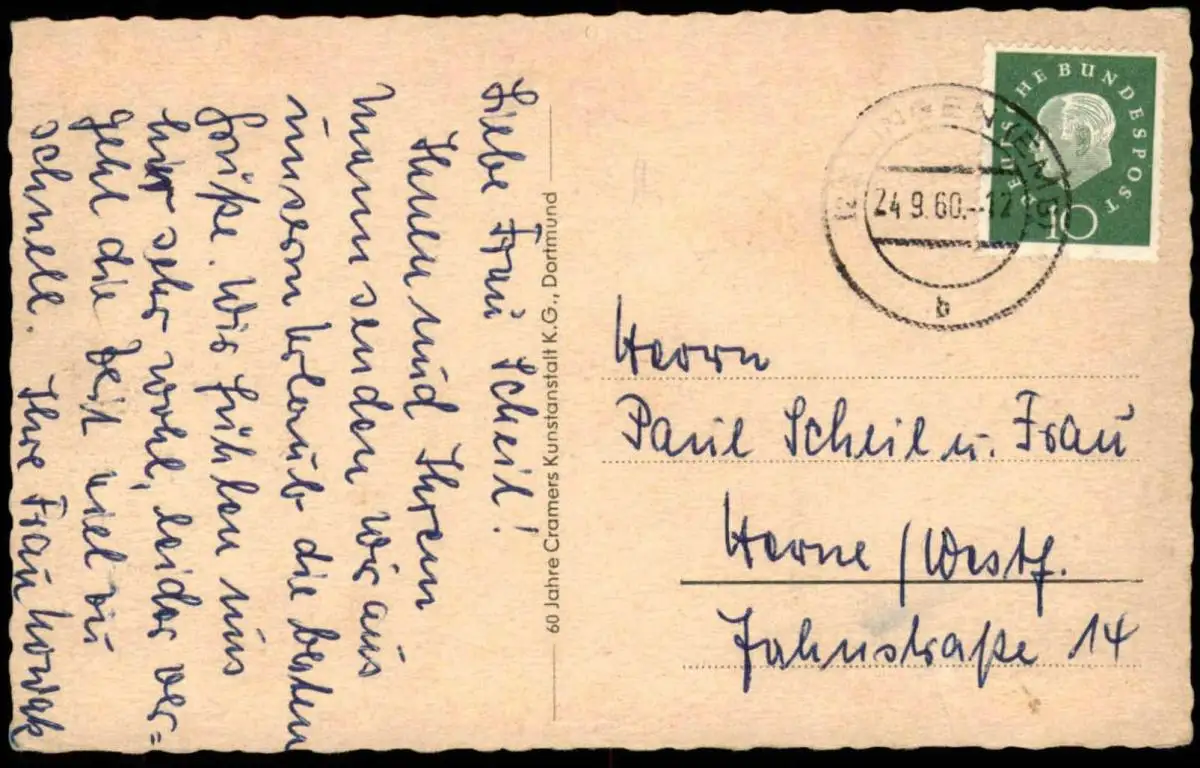 Liebe Frau Scheil!
Ihnen und Ihrem
Mann senden wir aus
unserm Urlaub die besten
Grüße. Wir fühlen uns
hier sehr wohl, leider ver=
geht die Zeit viel zu
schnell. Ihre Frau Kowak
60 Jahre Cramers Kunstanstalt K.G., Dortmund
DEUTSCHE BUNDESPOST
10
INGEN (EMS)
24.9.60.-12
b
Herrn
Paul Scheil u. Frau
Herne / Westf.
Jahnstraße 14